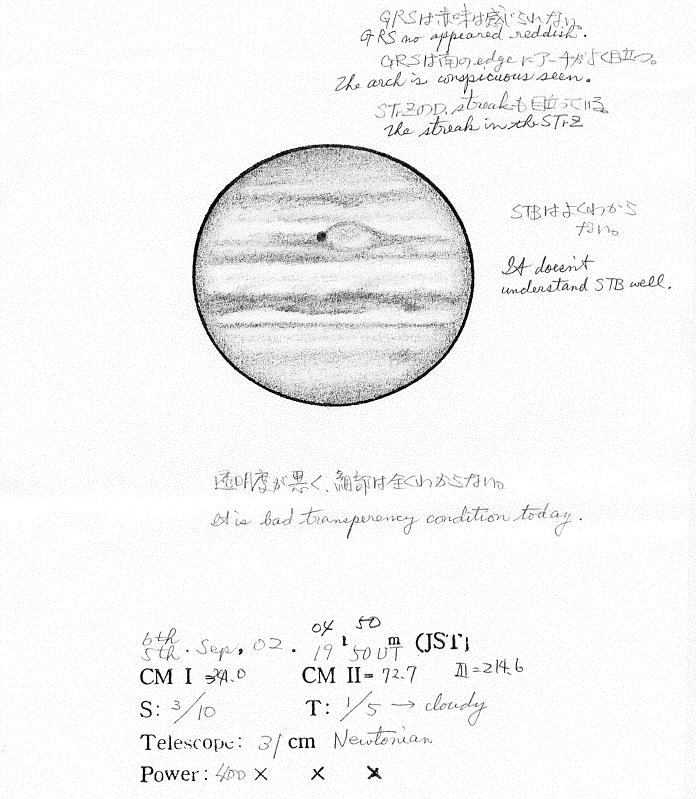 GRSは赤味は感じられない。
GRS no appeared reddish.
GRSは南のedgeにアーチがよく目立つ。
The arch is conspicuous seen.
STrZのD. streakも目立っている。
The streak in the STrZ
STBはよくわから
ない。
It doesn't
understand STB well.
透明度が悪く、細部は全くわからない。
It is bad transperency condition today.
04 50
6th
5th. Sep, 02. 19 50 UT m (JST)
CM I = 34.0 CM II= 72.7 III=214.6
S: 3/10 T: 1/5 → cloudy
Telescope: 31 cm Newtonian
Power: 400 × × ×